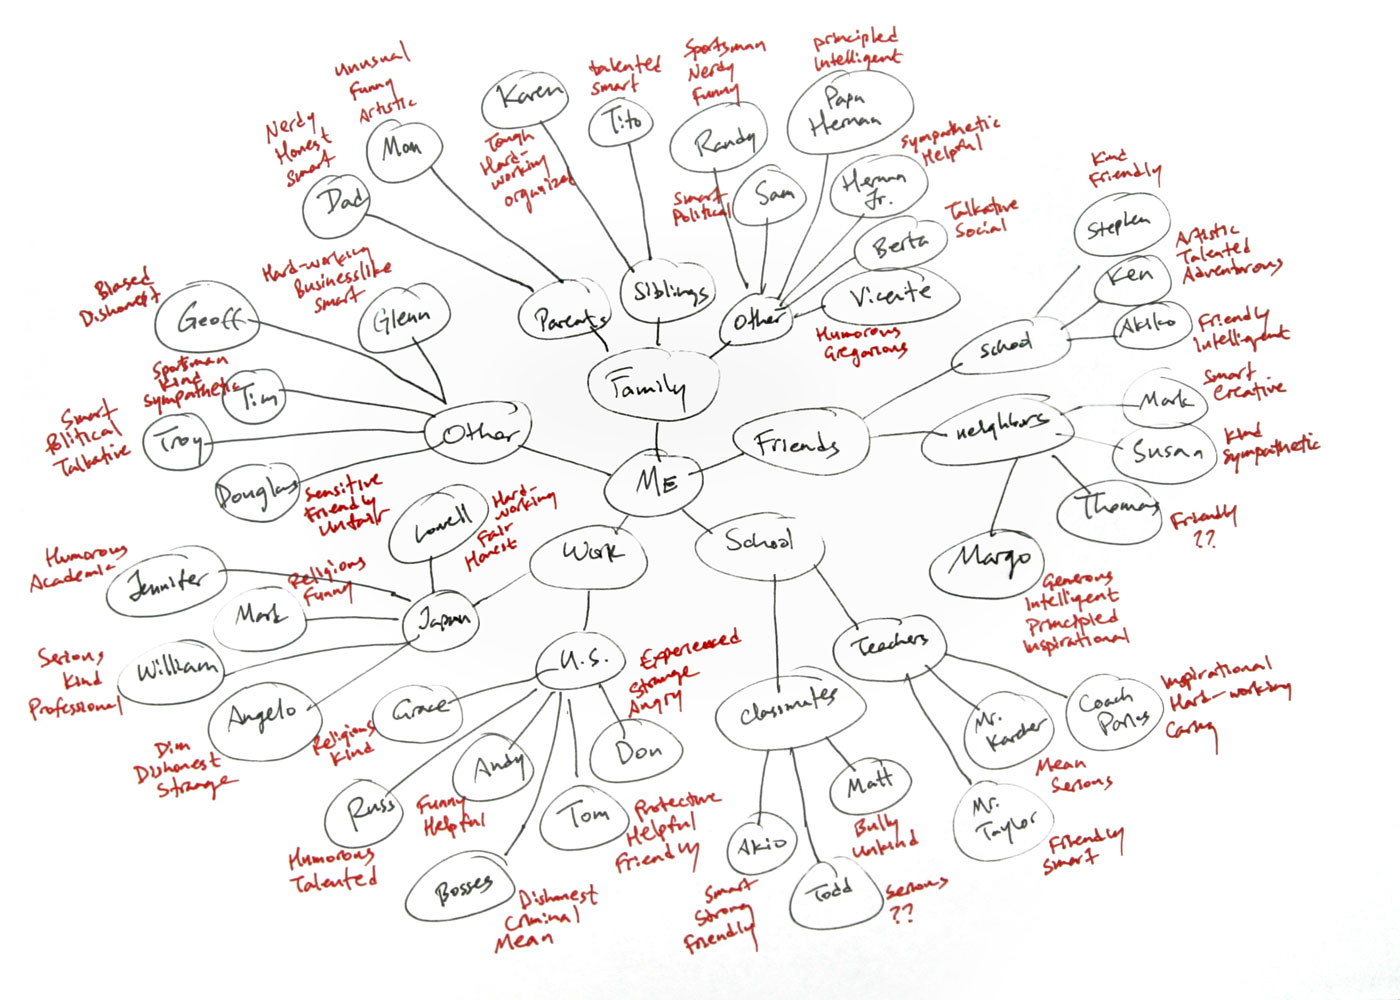 unusual
Funny
Artistic
Mom
Nerdy
Honest
Smart
Dad
Karen
Tough
Hard-
working
organized
talented
smart
Tito
Sportsman
Nerdy
Funny
Randy
principled
intelligent
Papa
Hernan
Sympathetic
Helpful
Hernan
Jr.
Smart
Political
Sam
Talkative
Social
Berta
Vicente
Humorous
Gregarious
Parents
Siblings
Other
Family
Kind
Friendly
Stephen
Artistic
Talented
Adventurous
Ken
Akiko
Friendly
Intelligent
School
Smart
Creative
Mark
neighbors
Kind
Sympathetic
Susan
Thomas
Friendly
??
Margo
Generous
Intelligent
Principled
Inspirational
Friends
ME
Biased
Dishonest
Geoff
Hard-working
Businesslike
Smart
Glenn
Sportsman
Kind
Sympathetic
Tim
Smart
Political
Talkative
Troy
Other
Douglas
Sensitive
Friendly
Unfair
Lowell
Hard-
working
Fair
Honest
Work
School
Humorous
Academic
Jennifer
Religious
Funny
Mark
Japan
Serious
Kind
Professional
William
Angelo
Dim
Dishonest
Strange
U.S.
Experienced
Strange
Angry
Don
Grace
Religious
Kind
Andy
Funny
Helpful
Russ
Humorous
Talented
Tom
Protective
Helpful
Friendly
Bosses
Dishonest
Criminal
Mean
Teachers
Classmates
Inspirational
Hard-working
Caring
Coach
Mr.
Karcher
Mean
Serious
Mr.
Taylor
Friendly
Smart
Matt
Bully
Unkind
Akio
Smart
Strong
Friendly
Todd
Serious
??